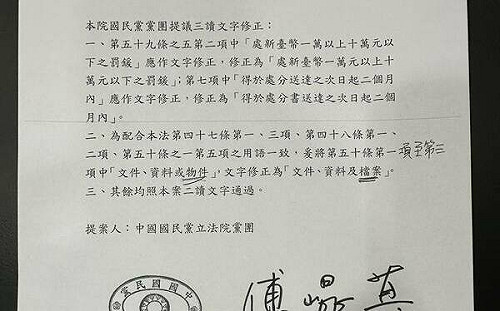 本院國民黨黨團提議三讀文字修正：
一、第五十九條之五第二項中「處新臺幣一萬以上十萬元以
下之罰鍰」應作文字修正，修正為「處新臺幣一萬元以上十
萬元以下之罰鍰」；第七項中「得於處分送達之次日起二個月
內」應作文字修正，修正為「得於處分書送達之次日起二個
月內」。
二、為配合本法第四十七條第一、三項、第四十八條第一、
二項、第五十條之一第五項之用語一致，爰將第五十條第一項至第三
項中「文件、資料或物件」，文字修正為「文件、資料及檔案」。
三、其餘均照本案二讀文字通過。
提案人：中國國民黨立法院黨團
中國國民黨
傅崐萁